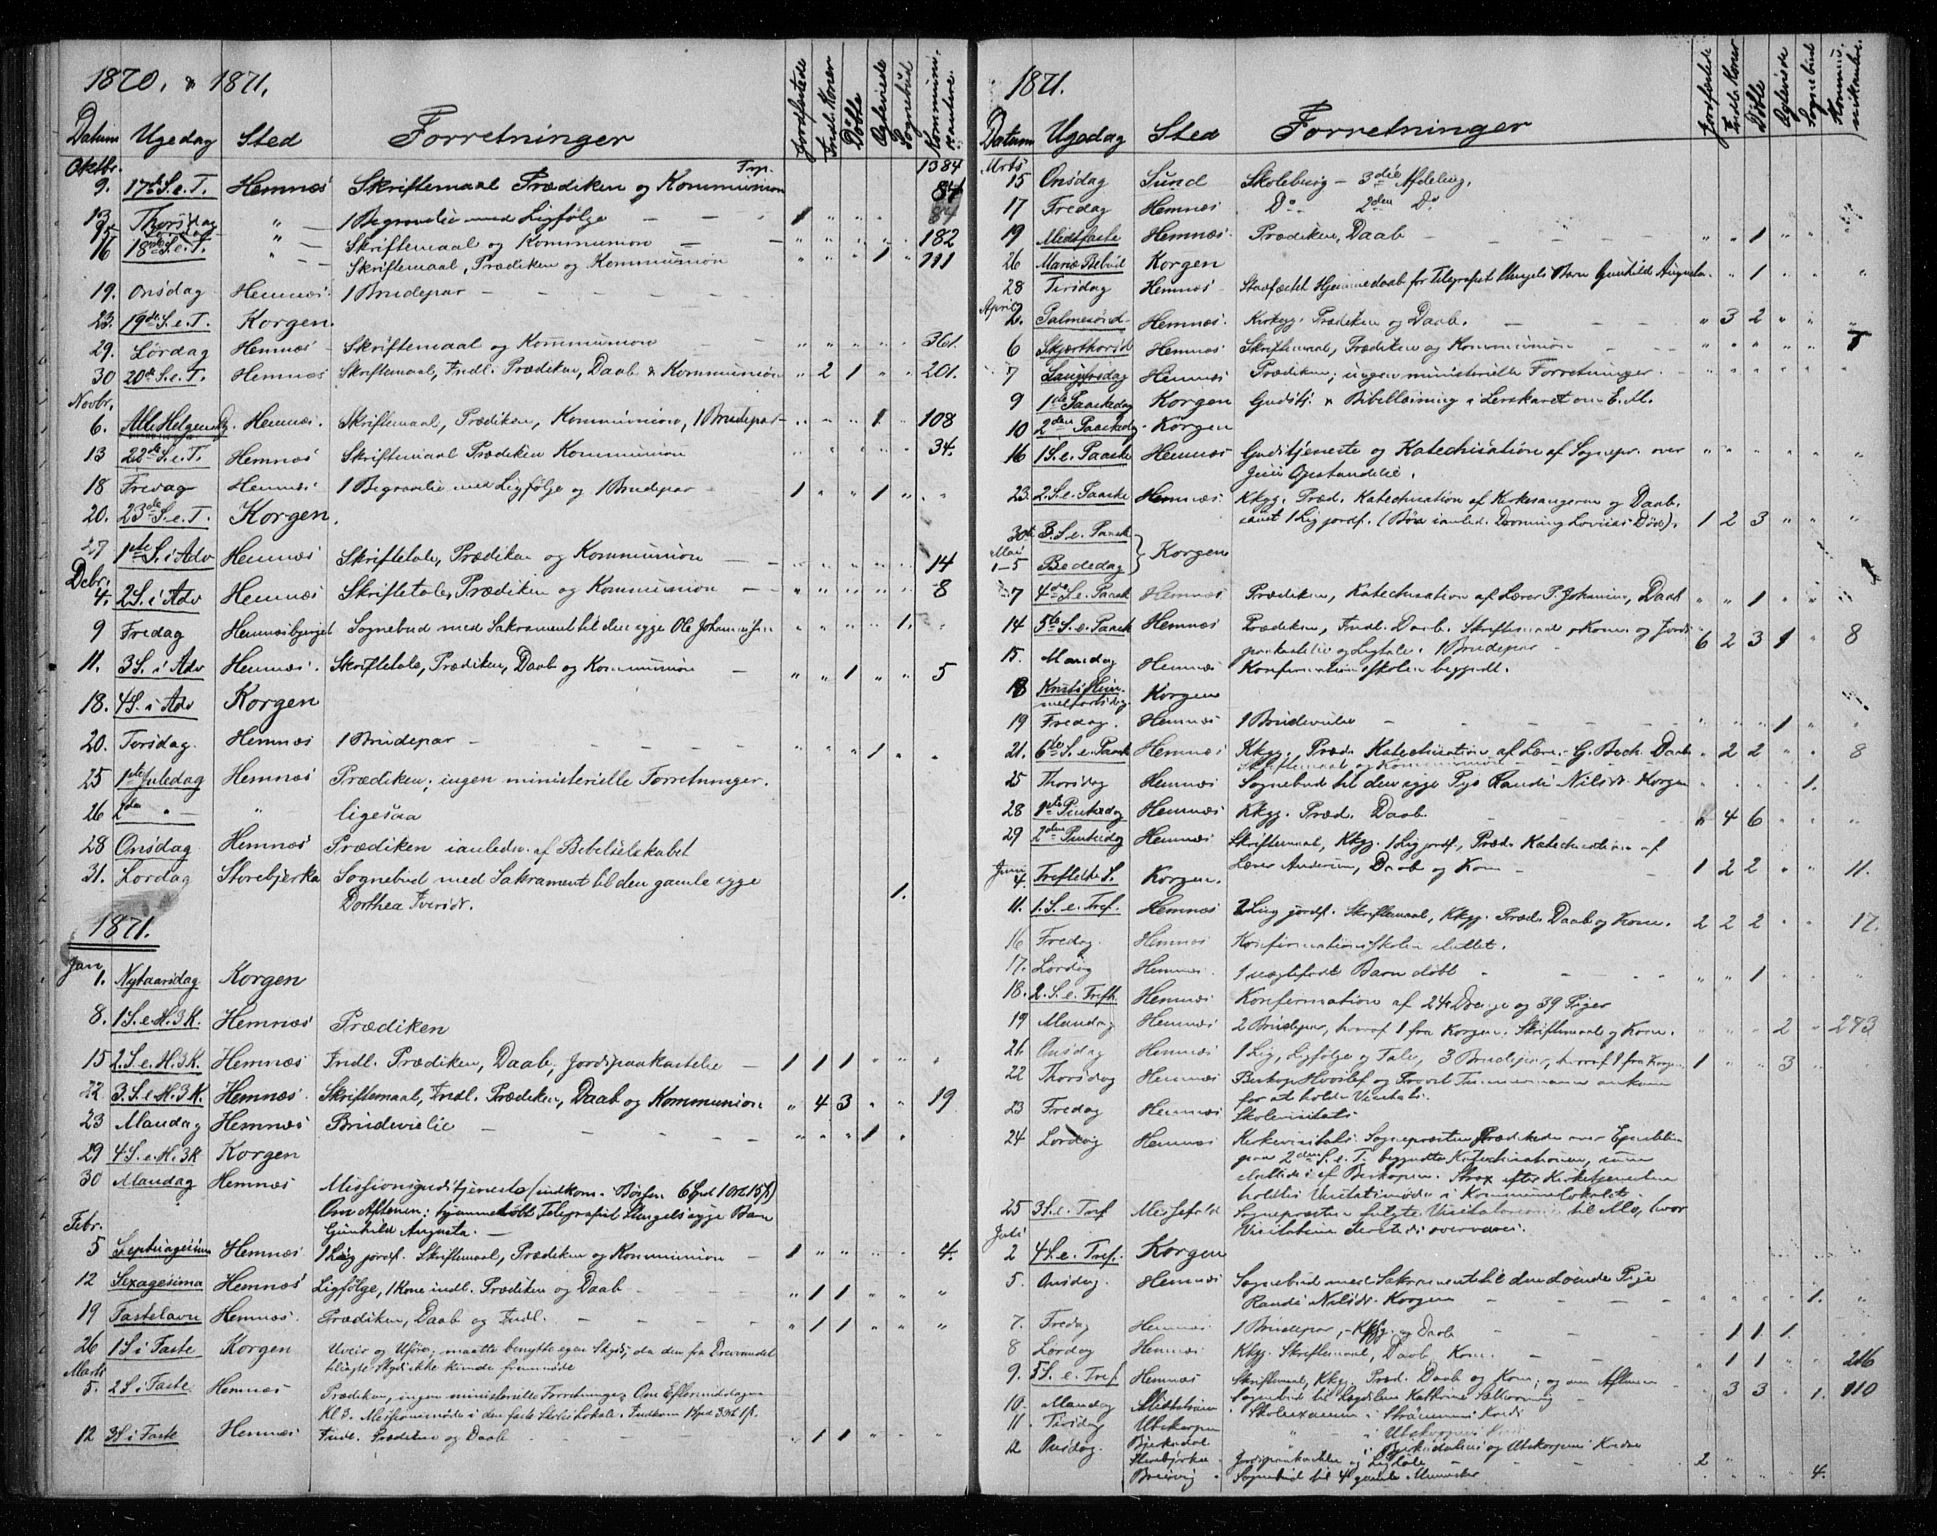 1870. & 1871.
Datum Ugedag Sted Forretninger Jordfæstede Indl. Koner Døbte Ægteviede Sognebud Kommunikantere.
Oktbr. Trp. 1384
9. 17de S. e. T. Hemnæs Skriftemaal Prædiken og Kommunion 84
13 Thorsdag " 1 Begravelse med Ligfølge 1 " " "
15 Lørdag " Skriftemaal og Kommunion " " " " 182
16 18de S. e. T. " Skriftemaal, Prædiken og Kommunion " " " 1 " 111
19. Onsdag Hemnæs 1 Brudepar
23. 19de S. e. T. Korgen.
29. Lørdag Hemnæs Skriftemaal og Kommunion " " " " 361.
30 20de S. e. T. Hemnæs Skriftemaal, Indl. Prædiken, Daab & Kommunion " 2 1 " " 201.
Novbr.
6. Alle Helgensdg. Hemnæs. Skriftemaal, Prædiken, Kommunion, 1 Brudepar " " " 1 " 108
13 22de S. e. T. Hemnæs Skriftemaal Prædiken Kommunion " " " " " 34.
18 Fredag Hemnæs 1 Begravelse med Ligfølge og 1 Brudepar 1 " " 1 " "
20. 23de S. e. T. Korgen.
27 1ste S. i Adv Hemnæs Skriftetale, Prædiken og Kommunion " " " " " 14
Debr.
4. 2 S. i Adv Hemnæs Skriftetale, Prædiken og Kommunion " " " " " 8
9 Fredag Hemnæsbjerget Sognebud med Sakrament til den syge Ole " " " " 1. "
11. 3 S. i Adv Hemnæs. Skriftetale, Prædiken, Daab og Kommunion " " 1 " " 5
18. 4 S. i Adv Korgen
20. Tirsdag. Hemnæs 1 Brudepar " " " 1 " "
25 1ste Juledag Hemnæs Prædiken; ingen ministerielle Forretninger.
26 2den " " ligesaa
28 Onsdag Hemnæs Prædiken ianledn. af Bibelselskabet
31. Lørdag Storebjerka Sognebud med Sakrament til den gamle syge 1.
Dorthea Iversdt.
1871.
Jan
1. Nytaarsdag Korgen
8. 1 S. e. H. 3 K. Hemnæs Prædiken
15 2. S. e. H. 3 K. Hemnæs Indl. Prædiken, Daab, Jordspaakastelse 1 1 1 " " "
22. 3. S. e. H. 3 K. Hemnæs Skriftemaal, Indl. Prædiken, Daab og Kommunion " 4 3 " " 19
23 Mandag Hemnæs Brudevielse " " " 1 "
29 4 S. e. H. 3 K Korgen
30 Mandag Hemnæs Missionsgudstjeneste (indkom. Bøssen 6 Spd 1 Ort 15 ß)
Om Aftenen: hjemmedøbt Telegrafist syge Barn
Gunhild Augusta.
Febr.
5 Septuagesima Hemnæs 1 Lig jordf. Skriftemaal, Prædiken og Kommunion 1 " " " " 4.
12 Sexagesima Hemnæs Ligfølge, 1 Kone indl. Prædiken og Daab " 1 1 " " "
19 Fastelavn Hemnæs. Prædiken, Daab og Indl. " 1 1 " " "
26 1 S i Faste Korgen Uveir og Uføre; maatte benytte egen Skyds, da den fra
Skyds ikke kunde fremmøde
Marts
5. 2 S i Faste. Hemnæs Prædiken, ingen ministerielle Forretninger; Om Eftermiddagen
Kl 3. Missionsmøde i den faste Skoles Lokale. Indkom
12 3 S i Faste Hemnæs Indl. Prædiken og Daab " 1 1 " " "
1871.
Datum Ugedag Sted Forretninger Jordfæstede Indl. Koner Døbte Ægteviede Sognebud Kommunikantere.
Mrts
15 Onsdag Sund Skolebesøg — 3die Afdeling.
17 Fredag Hemnæs Do 2den Do
19 Midtfaste Hemnæs Prædiken, Daab " " 1 " "
26 Mariæ Bebud Korgen
28 Tirsdag Hemnæs Stadfæstet Hjemmedaab for Telegrafist Barn Gunhild Augusta. " 1 " " "
April
2. Palmesønd Hemnæs. Kirkeg. Prædiken og Daab. " 3 2 " " "
6 Skjærthorsd Hemnæs Skriftemaal, Prædiken og Kommunion " " " " " 7
7 Langfredag Hemnæs Prædiken; ingen ministerielle Forretninger. " " " " " "
9 1ste Paaskedag Korgen Gudstj. & Bibellæsning i Leerskaret om E. M.
10 2den Paaskedg Korgen
16 1 S. e. Paaske Hemnæs Gudstjeneste og Katechisation af Sognepr. over " " " " " "
Jesu Opstandelse.
23. 2. S. e. Paaske Hemnæs Kkgg. Præd. Katechisation af Kirkesangeren og Daab,
samt 1 Lig jordf. 1 2 3 " " "
30te 3. S. e. Paask
Mai Korgen
1–5 Bededag
7 4de S. e. Paask Hemnæs Prædiken, Katechisation af Lærer P. Johansen, Daab " " 1 " " "
14 5te S. e. Paask Hemnæs Prædiken, Indl. Daab. Skriftemaal & Kom. og Jords- 6 2 3 1 " 8
paakastelse og Ligtale. 1 Brudepar
15. Mandag Hemnæs Konfirmationsskolen begyndt.
18 Kristi Himmelfartsdag Korgen
19 Fredag. Hemnæs 1 Brudevielse " " " 1 " "
21. 6te S. e. Paask Hemnæs Kkgg. Præd. Katechisation af Lærer G. Bech. Daab " 2 2 " " 8
Skriftemaal og Kommunion
25 Thorsdag Hemnæs Sognebud til den syge Pige Randi Nilsdt. Korgen " " " " 1.
28 1ste Pintsedag Hemnæs Kkgg. Præd. Daab. " 4 6 " " "
29 2den Pintsedag Hemnæs Skriftemaal, Kkgg. 1 Lig jordf, Præd. Katechisation af
Lærer Andersen, Daab og Kom 1 2 2 " " 11.
Juni
4. Trefoldh. S. Korgen.
11. 1. S. e. Tref. Hemnæs 2 Lig jordf. Skriftemaal, Kkgg. Præd. Daab og Kom. 2 2 2 " " 17.
16 Fredag. Hemnæs Konfirmationsskolen sluttet.
17. Lørdag Hemnæs 1 uægtefødt Barn døbt " " 1 " " "
18. 2. S. e. Trefh. Hemnæs Konfirmation af 24 Drenge og 39 Piger
19 Mandag Hemnæs 2 Brudepar, hvoraf 1 fra Korgen. Skriftemaal og Kom. " " " 2 " 273
Onsdag Hemnæs 1 Lig, Ligfølge og Tale, 3 Brudepar, hvoraf 1 fra Korgen 1 " " 3
22 Thorsdag Hemnæs Biskop Hvoslef og Provst ankom
for at holde Visitats.
23 Fredag Hemnæs Skolevisitats
24 Lørdag Hemnæs Kirkevisitats. Sognepræsten prædikede over Epistelen
paa 2den S. e. T. begyndte Katechisationen, som
sluttedes af Biskopen. Strax efter Kirketjenesten
holdtes Visitatsmøde i Kommunelokalet.
25 3 S. e. Tref Sognepræsten fulgte Visitatorerne til Mo, hvor
Visitatsen
Juli
2 4 S. e. Tref. Korgen
5. Onsdag. Hemnæs Sognebud med Sakrament til den døende Pige
Randi Nilsdt. Korgen " " " " 1. "
7. Fredag Hemnæs 1 Brudepar, Kkgg. og Daab " 1 1 1. "
8 Lørdag Hemnæs Kkgg. Skriftemaal, Daab, Kom. " 1 1 " " 216
9. 5 S. e. Tref Hemnæs Skriftemaal, Kkgg. Præd. Daab og Kom; og om Aftenen " 3 3 " 1. 110
Sognebud til
10. Mandag Skolexamen i Kreds
11. Tirsdag Utskorpen " i Utskorpens
12 Onsdag. Bjerkadal " i Bjerkadalens og Utskorpens Kredse
Storebjerka Jordspaakastelse og Ligtale 2
Breivig Sognebud til 4 gamle Mennesker 4.